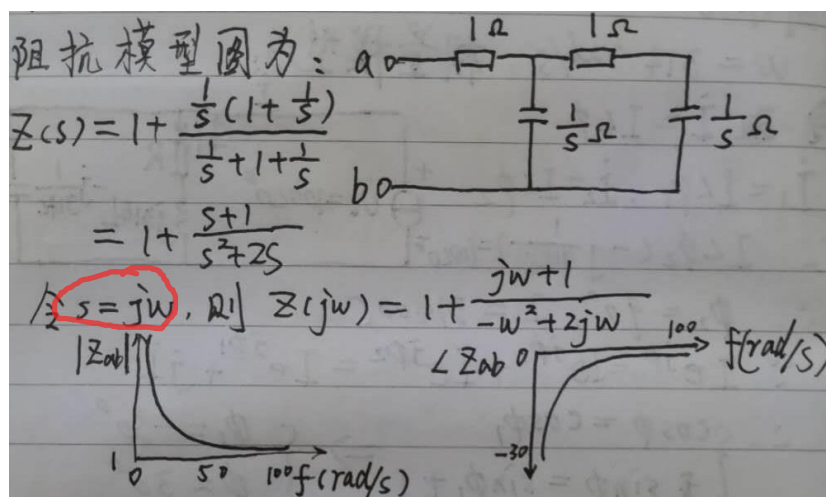 阻抗模型图为：a 1Ω 1Ω
Z(s)=1+\frac{\frac{1}{s}(1+\frac{1}{s})}{\frac{1}{s}+1+\frac{1}{s}}
\frac{1}{s}Ω \frac{1}{s}Ω
b
=1+\frac{s+1}{s^2+2s}
令 s=jw，则 Z(jw)=1+\frac{jw+1}{-w^2+2jw}
|Zab|
1 0 50 100 f(rad/s)
∠Zab 0 100 f(rad/s)
-30